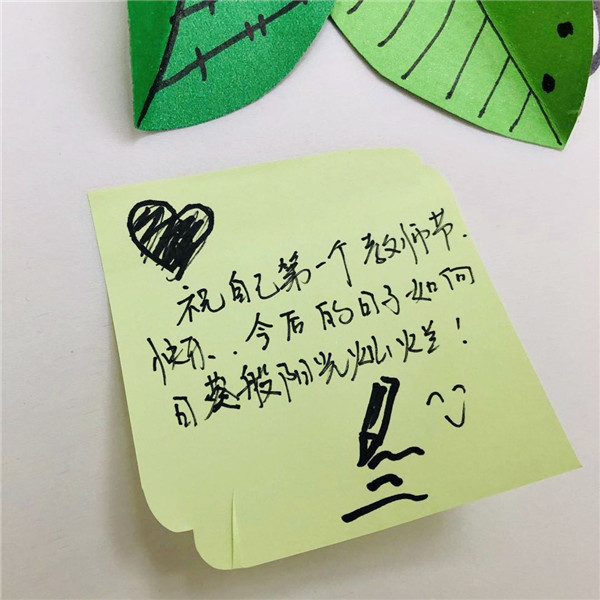 祝自己第一个教师节.
快乐.今后的日子如向
日葵般阳光灿烂!